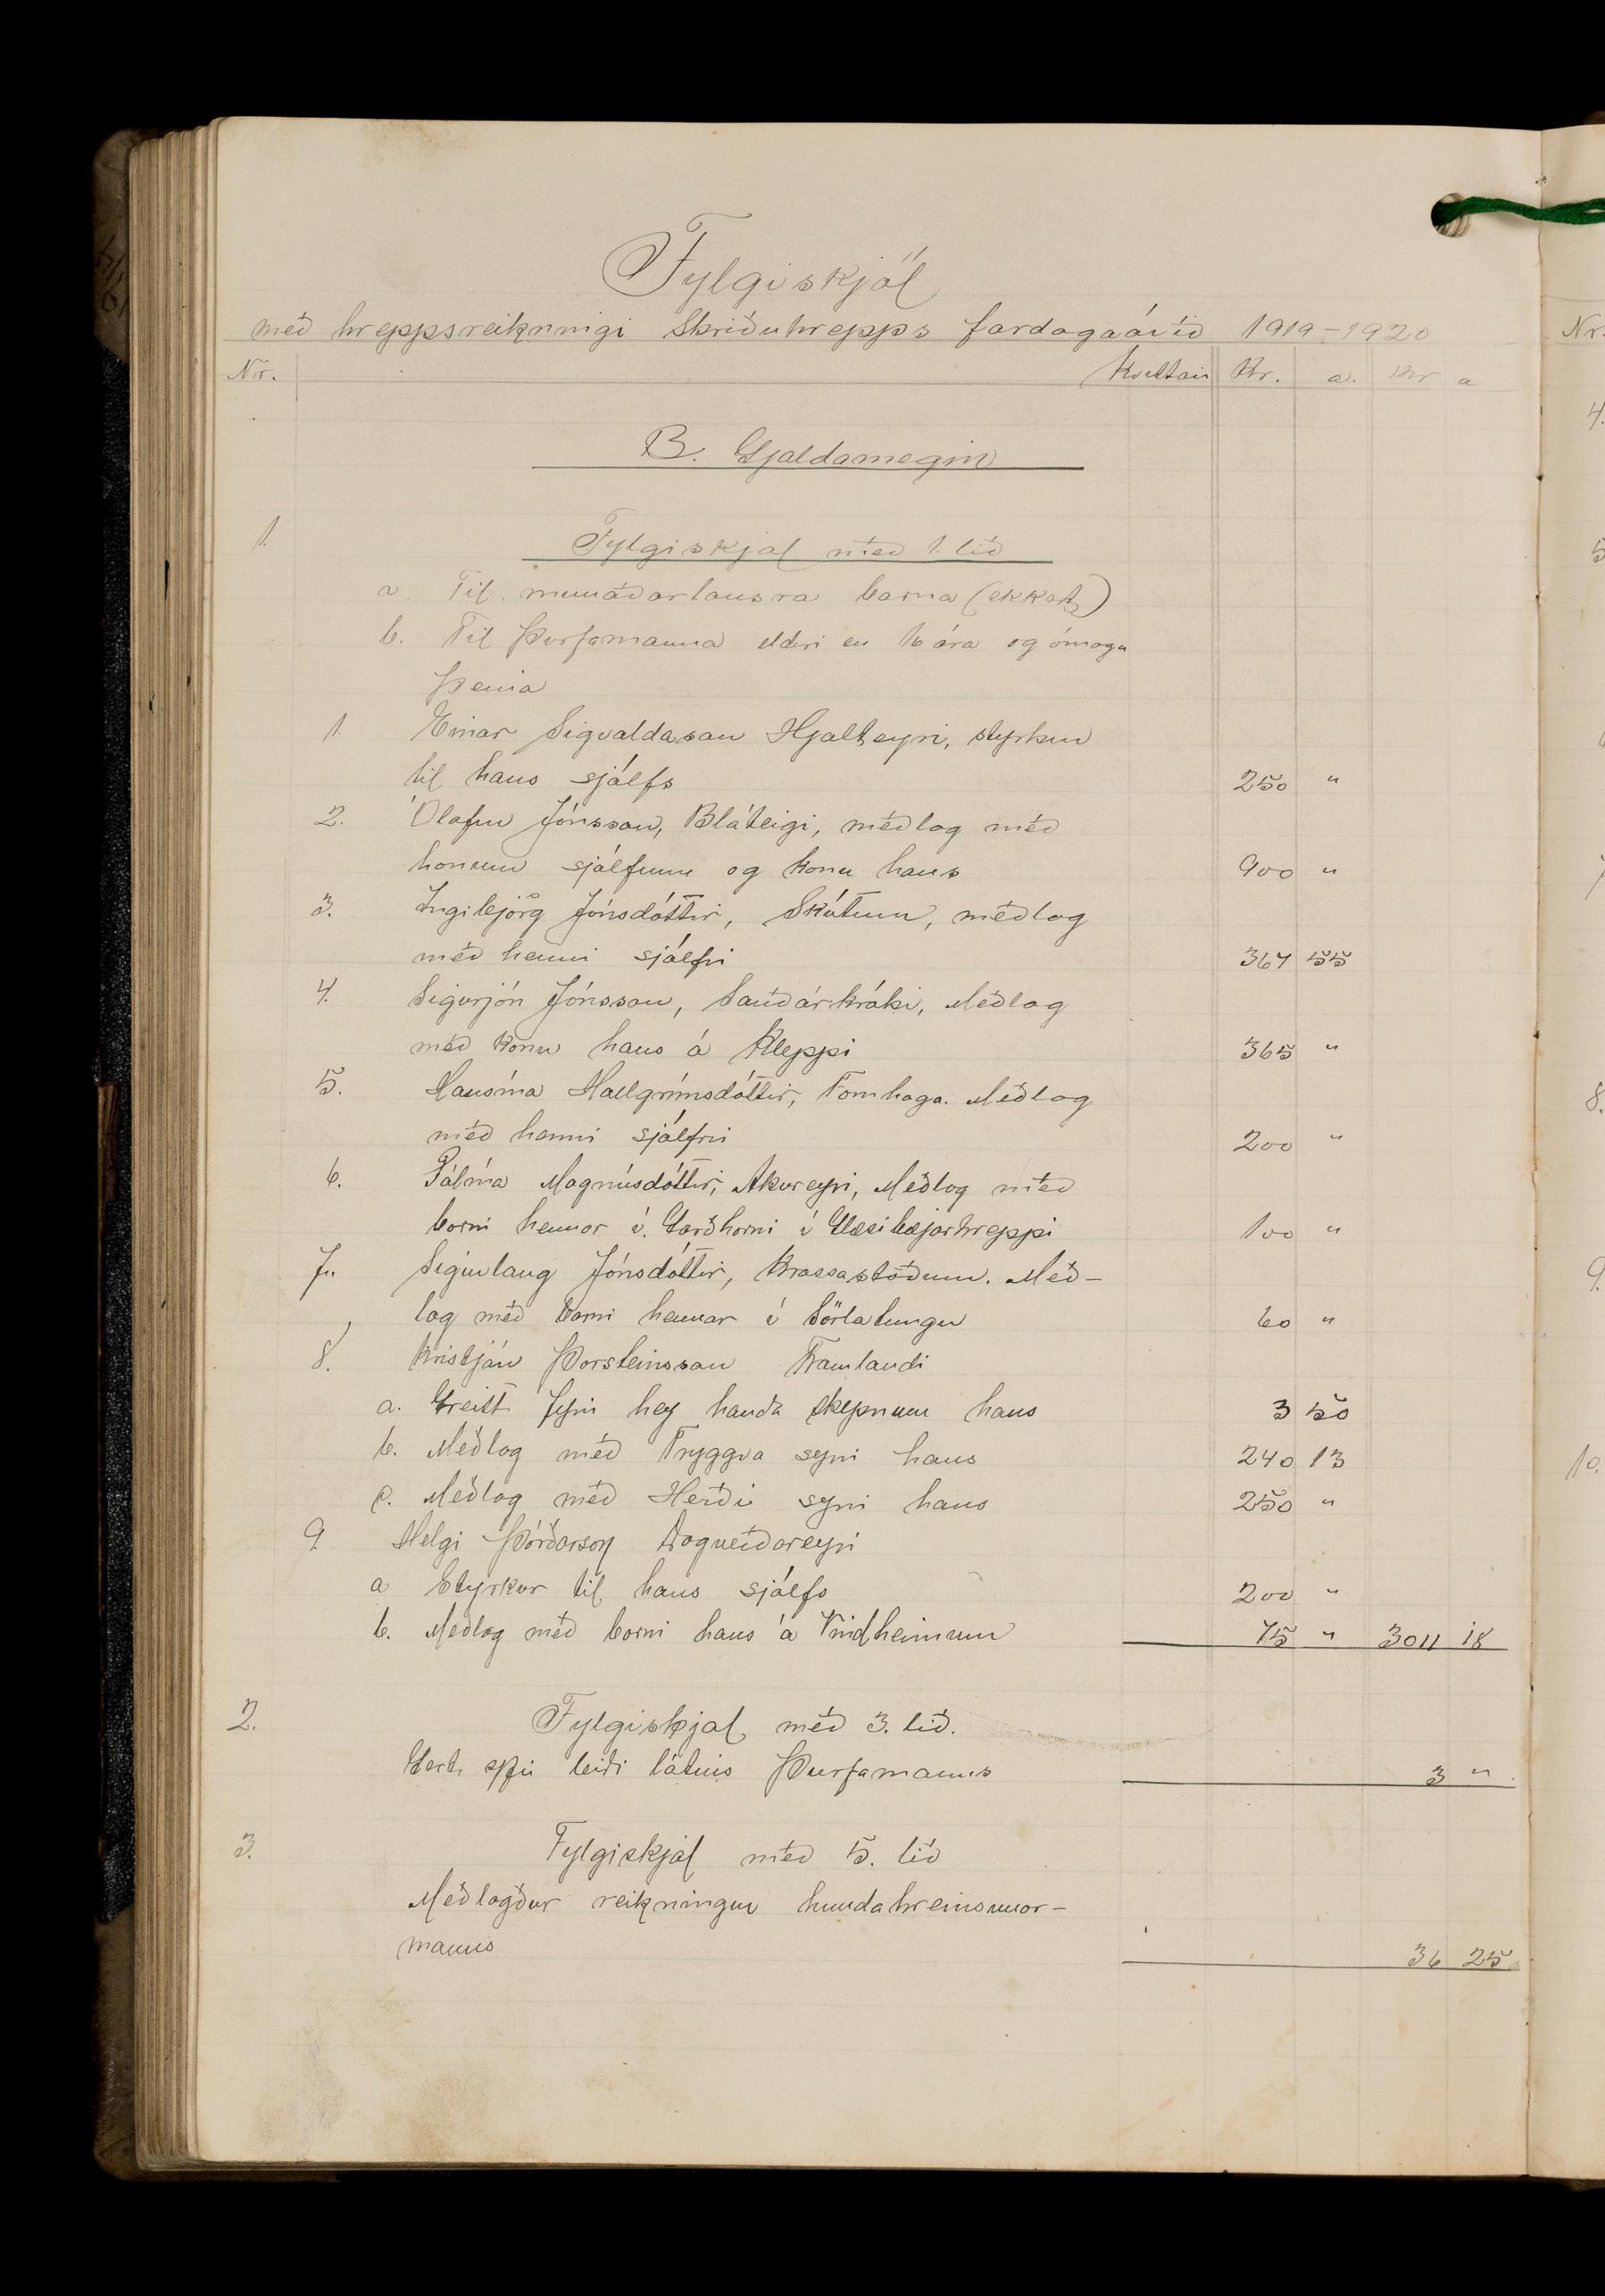 Fylgiskjöl
með hreppsreikningi Skriðuhrepps fardagaárið 1919-1920
Nr. Kvittan Kr. a. Kr a
B. Gjaldamegin
1. Fylgiskjal með 1. lið
a. Til munaðarlausra barna (ekkert)
b. Til þurfamanna eldri en 16 ára og ómaga
þeirra
1. Einar Sigvaldason Hjalteyri, styrkur
til hans sjálfs 250 "
2. Ólafur Jónsson, Bláteigi, meðlag með
honum sjálfum og konu hans 900 "
3. Ingibjörg Jónsdóttir, Skútum, meðlag
með henni sjálfri 367 55
4. Sigurjón Jónsson, Sauðárkróki, Meðlag
með konu hans á Kleppi 365 "
5. Hansína Hallgrímsdóttir, Fornhaga. Meðlag
með henni sjálfri 200 "
6. Pálína Magnúsdóttir, Akureyri, Meðlag með
barni hennar í Garðhorni í Glæsibæjarhreppi 100 "
7. Sigurlaug Jónsdóttir, Krossastöðum. Með-
lag með barni hennar í Sörlatungu 60 "
8. Kristján Þorsteinsson Framlandi
a. Greitt fyrir hey handa skepnum hans 3 50
b. Meðlag með Tryggva syni hans 240 13
c. Meðlag með Herði syni hans 250 "
9. Helgi Þórðarson Dagverðareyri
a Styrkur til hans sjálfs 200 "
b. Meðlag með barni hans á Vindheimum 75 " 3011 18
2. Fylgiskjal með 3. lið.
leiði látins þurfamanns 3 "
3. Fylgiskjal með 5. lið
Meðlagður reikningur hundahreinsunar-
manns 36 25
Nr.
4.
5
7
8.
9.
10.